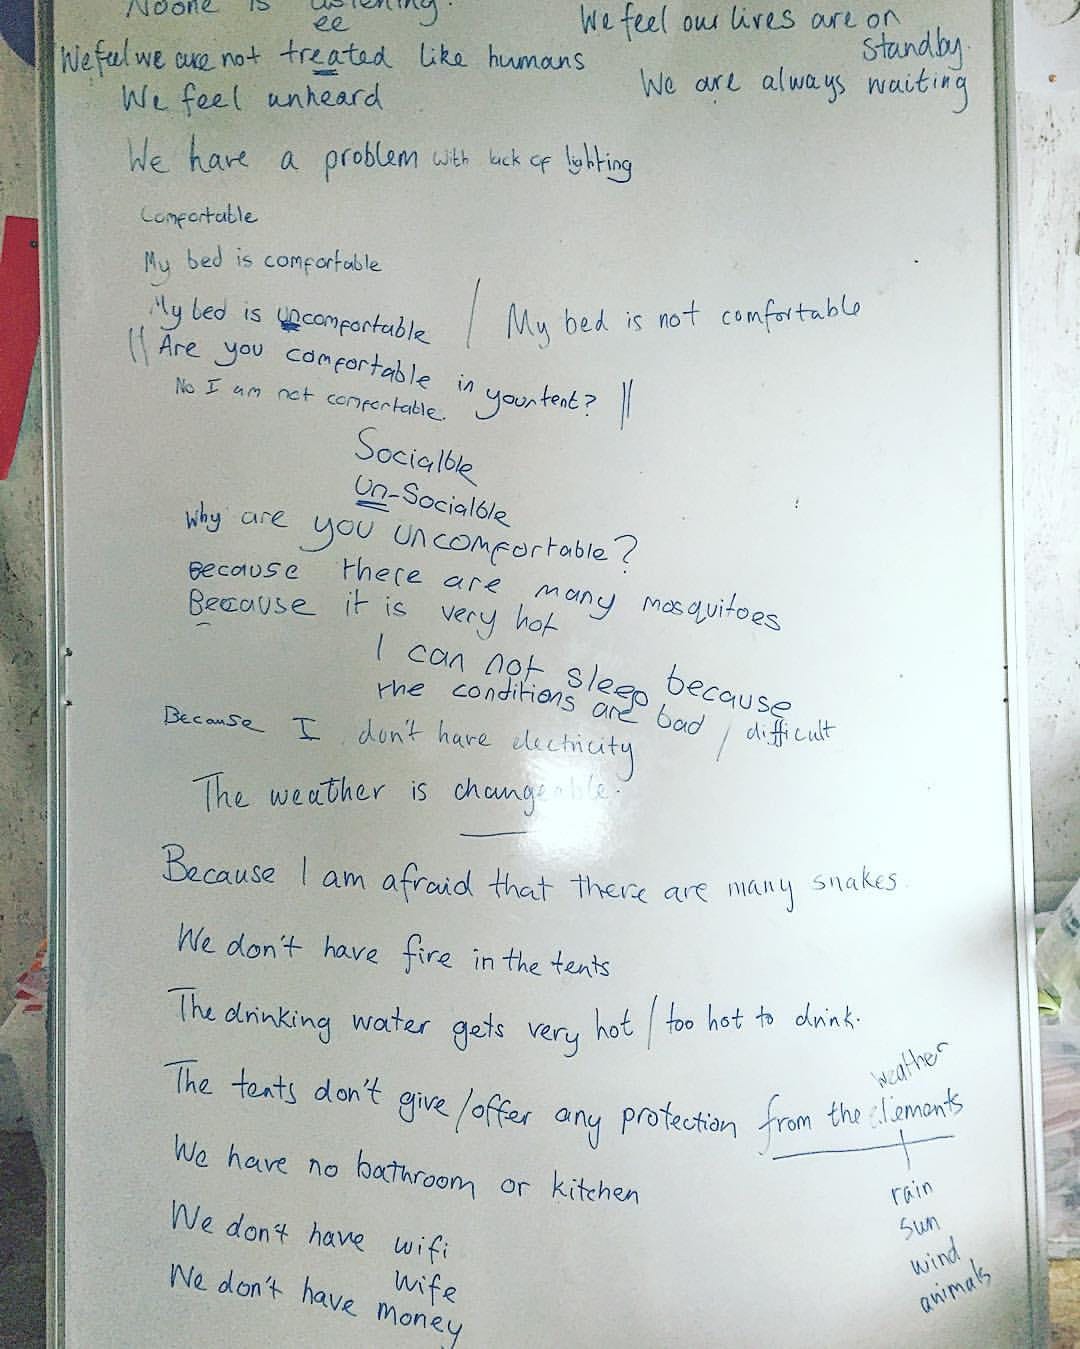 Noone is listening.
ee
We feel our lives are on
standby.
We feel we are not treated like humans
We are always waiting
We feel unheard
We have a problem with lack of lighting
Comfortable
My bed is comfortable
My bed is uncomfortable / My bed is not comfortable
|| Are you comfortable in your tent? ||
No I am not comfortable.
Socialble
Un-Socialble
Why are you uncomfortable?
Because there are many mosquitoes
Because it is very hot
I can not sleep because
the conditions are bad / difficult
Because I don't have electricity
The weather is changeable.
Because I am afraid that there are many snakes.
We don't have fire in the tents
The drinking water gets very hot / too hot to drink.
weather
The tents don't give / offer any protection from the elements
We have no bathroom or kitchen
rain
sun
wind
animals
We don't have wifi
wife
We don't have money